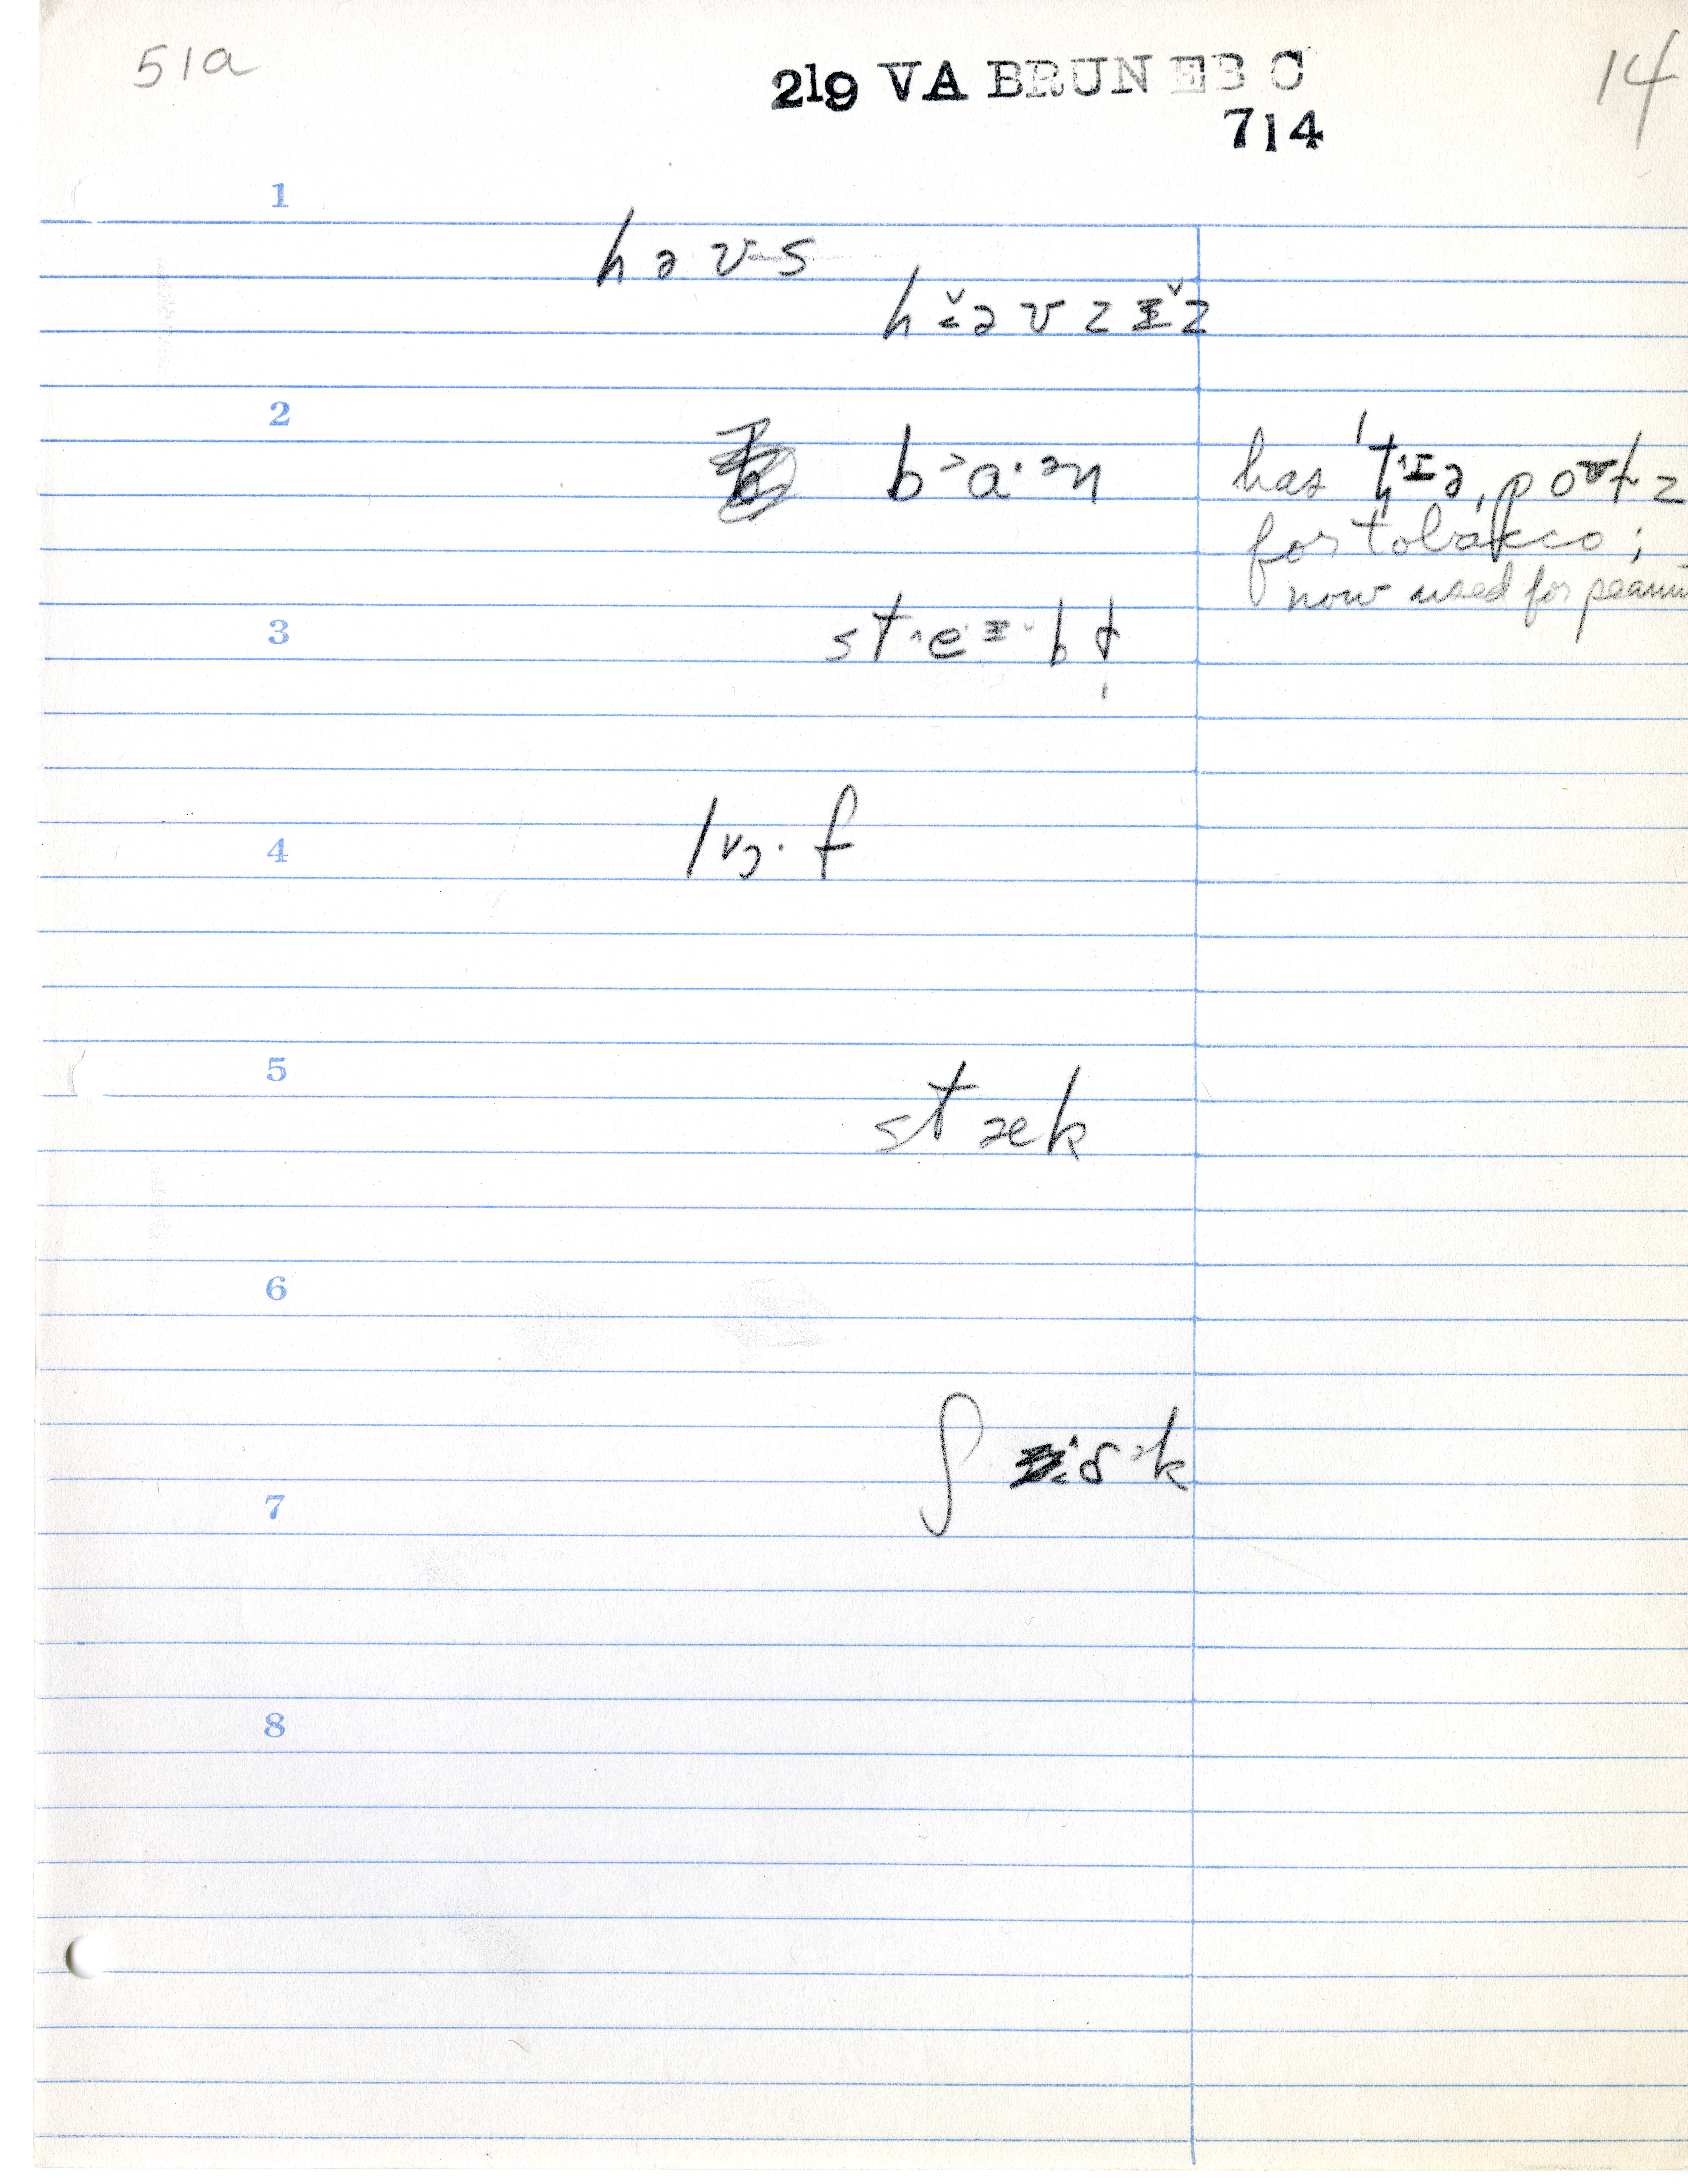 51a
219 VA BRUN EB C
14
714
1
həʊs
hɨ̆əʊzɪ̆z
2
b˃ɑ·ən
has 'tɪə,poʊɫz
for tobacco;
now used for peanu
3
st
4
l˅ɔ·f
5
stæk
6
ʃ
7
8